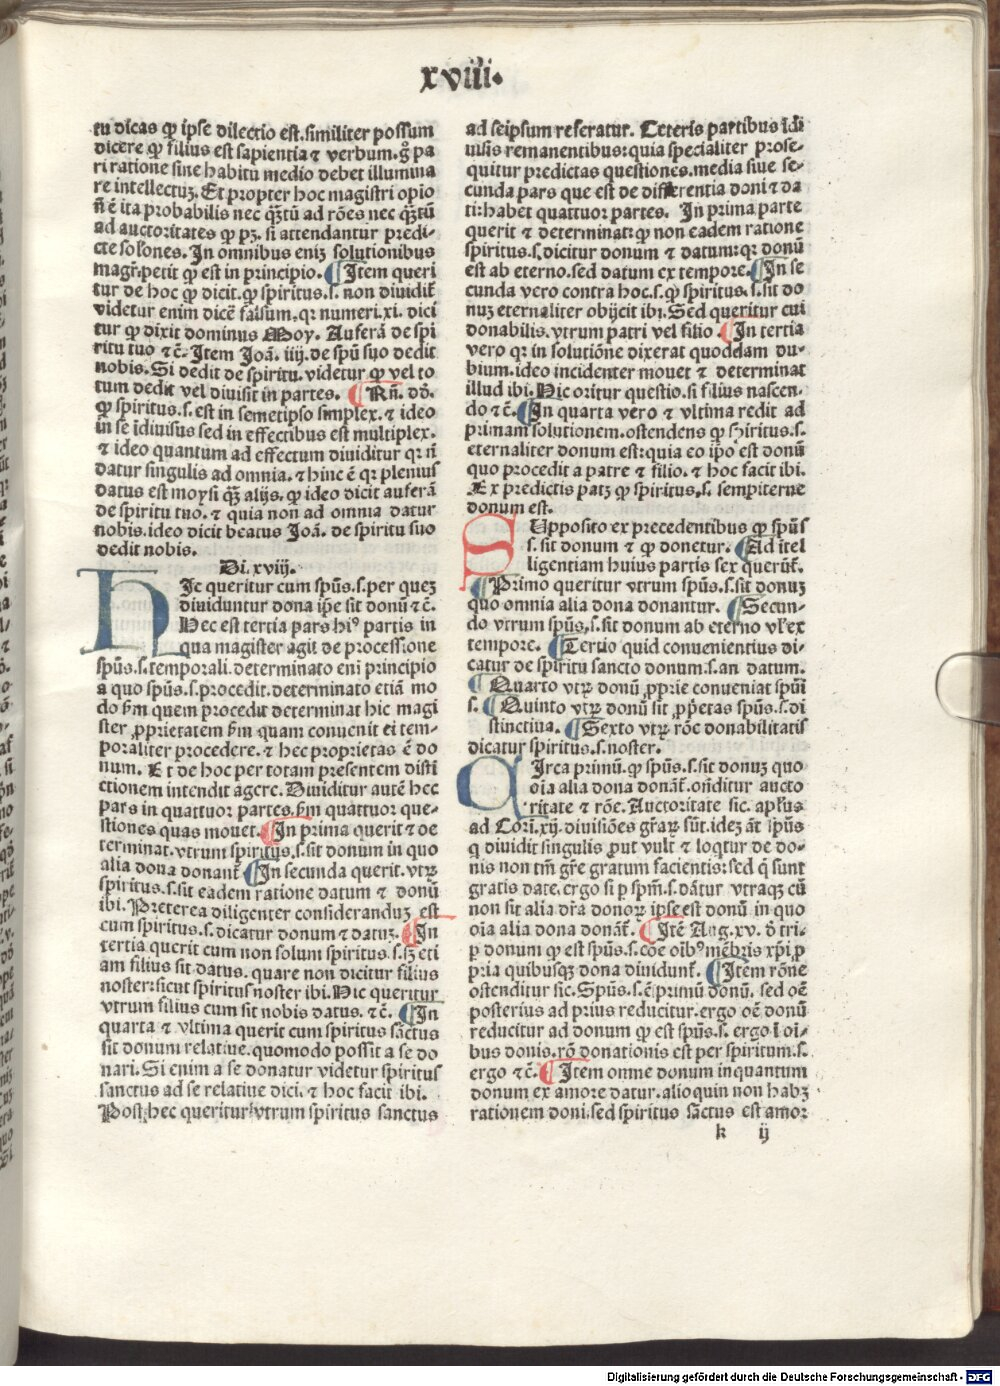 xviii.
tu dicas ꝙ ipse dilectio est. similiter possum
dicere ꝙ filius est sapientia ⁊ verbum. gͦ pa
ri ratione sine habitu medio debet illumina
re intellectuꝫ. Et propter hoc magistri opio
nō ē ita probabilis nec qꝫtū ad rōes nec qꝫtū
ad auctoritates ꝙ pꝫ. si attendantur predi-
cte solōnes. In omnibus eniꝫ solutionibus
magr̄. petit ꝙ est in principio. ¶ Item queri
tur de hoc ꝙ dicit. ꝙ spiritus .s. non diuidit᷑
videtur enim dicē falsum. qꝛ numeri. xi. dici
tur ꝙ dixit dominus Moy. Auferā de spi
ritu tuo ⁊ c̄. Item Joā. iiij. de spū suo dedit
nobis. Si dedit de spiritu. videtur ꝙ vel to
tum dedit vel diuisit in partes. ¶ Rn̄. dō.
ꝙ spiritus .s. est in semetipso simplex. ⁊ ideo
in se idiuisus sed in effectibus est multiplex.
⁊ ideo quantum ad effectum diuiditur qꝛ n̄
datur singulis ad omnia. ⁊ hinc ē qꝛ plenius
datus est moysi qꝫ alijs. ꝙ ideo dicit auferā
de spiritu tuo. ⁊ quia non ad omnia datur
nobis. ideo dicit beatus Joā. de spiritu suo
dedit nobis.
Di. xviij.
HIc queritur cum spūs .s. per queꝫ
diuiduntur dona ip̄e sit donū ⁊ c̄.
Hec est tertia pars hiꝰ partis in
qua magister agit de processione
spūs .s. temporali. determinato eni principio
a quo spūs .s. procedit. determinato etiā mo
do ẜm quem procedit determinat hic magi
ster ꝓprietatem ẜm quam conuenit ei tem-
poraliter procedere. ⁊ hec proprietas ē do
num. Et de hoc per totam presentem disti
ctionem intendit agere. Diuiditur autē hec
pars in quattuor partes. ẜm quattuor que-
stiones quas mouet. ¶ In prima querit ⁊ de
terminat. vtrum spiritus .s. sit donum in quo
alia dona donant᷑. ¶ In secunda querit. vtꝝ
spiritus .s. sit eadem ratione datum ⁊ donū
ibi. Preterea diligenter considerandum est
cum spiritus .s. dicatur donum ⁊ datuꝫ. ¶ In
tertia querit cum non solum spiritus .s. sꝫ eti
am filius sit datus. quare non dicitur filius
noster: sicut spiritus noster ibi. Hic queritur
vtrum filius cum sit nobis datus. ⁊ c̄. ¶ In
quarta ⁊ vltima querit cum spiritus sāctus
sit donum relatiue. quomodo possit a se do
nari. Si enim a se donatur videtur spiritus
sanctus ad se relatiue dici. ⁊ hoc facit ibi.
Post hec queritur vtrum spiritus sanctus
ad seipsum referatur. Ceteris partibus idi
uisis remanentibus: quia specialiter prose-
quitur predictas questiones. media siue se-
cunda pars que est de differentia doni ⁊ da
ti: habet quattuor partes. In prima parte
querit ⁊ determinat: ꝙ non eadem ratione
spiritus .s. dicitur donum ⁊ datum: qꝛ donū
est ab eterno. sed datum ex tempore. ¶ In se
cunda vero contra hoc .s. ꝙ spiritus .s. sit do
nuꝫ eternaliter obijcit ibi. Sed queritur cui
donabilis. vtrum patri vel filio. ¶ In tertia
vero qꝛ in solutiōne dixerat quoddam du-
bium. ideo incidenter mouet ⁊ determinat
illud ibi. Hic oritur questio. si filius nascen-
do ⁊ c̄. ¶ In quarta vero ⁊ vltima redit ad
primam solutionem. ostendens ꝙ spiritus .s.
eternaliter donum est: quia eo ip̄o est donū
quo procedit a patre ⁊ filio. ⁊ hoc facit ibi.
Ex predictis patꝫ ꝙ spiritus .s. sempiterne
donum est.
SUpposito ex precedentibus ꝙ spūs
.s. sit donum ⁊ ꝙ donetur. ¶ Ad itel
ligentiam huius partis sex querūt᷑.
¶ Primo queritur vtrum spūs .s. sit donuꝫ
quo omnia alia dona donantur. ¶ Secun-
do vtrum spūs .s. sit donum ab eterno vl᷑ ex
tempore. ¶ Tertio quid conuenientius di-
catur de spiritu sancto donum .s. an datum.
¶ Quarto vtꝝ donū ꝓprie conueniat spūi
.s. ¶ Quinto vtꝝ donū sit ꝓp̄etas spūs .s. di
stinctiua. ¶ Sexto vtꝝ rōe donabilitatis
dicatur spiritus .s. noster.
CIrca primū. ꝙ spūs .s. sit donuꝫ quo
oīa alia dona donāt᷑. ondītur aucto
ritate ⁊ rōe. Auctoritate sic. ap̄lus
ad Cori. xij. diuisiōes gr̄aꝝ sūt. ideꝫ āt ip̄us
q diuidit singulis ꝓut vult ⁊ loqtur de do-
nis non tm̄ gr̄e gratum facientis: sed q̄ sunt
gratis date. ergo si ꝑ spm̄ .s. dātur vtraqꝫ cū
non sit alia dr̄a donoꝝ ipse est donū in quo
oīa alia dona donāt᷑. ¶ Itē Aug. xv. d̄ tri-
ꝑ donum ꝙ est spūs .s. cōe oībꝰ mēbris xp̄i ꝓ
pria quibusqꝫ dona diuidunt᷑. ¶ Item rōne
ostenditur sic. Spūs .s. ē primū donū. sed oē
posterius ad prius reducitur. ergo oē donū
reducitur ad donum ꝙ est spūs .s. ergo ī oī-
bus donis. rō donationis est per spiritum .s.
ergo ⁊ c̄. ¶ Item omne donum inquantum
donum ex amore datur. alioquin non habꝫ
rationem doni. sed spiritus sāctus est amor
k ij
Digitalisierung gefördert durch die Deutsche Forschungsgemeinschaft - DFG